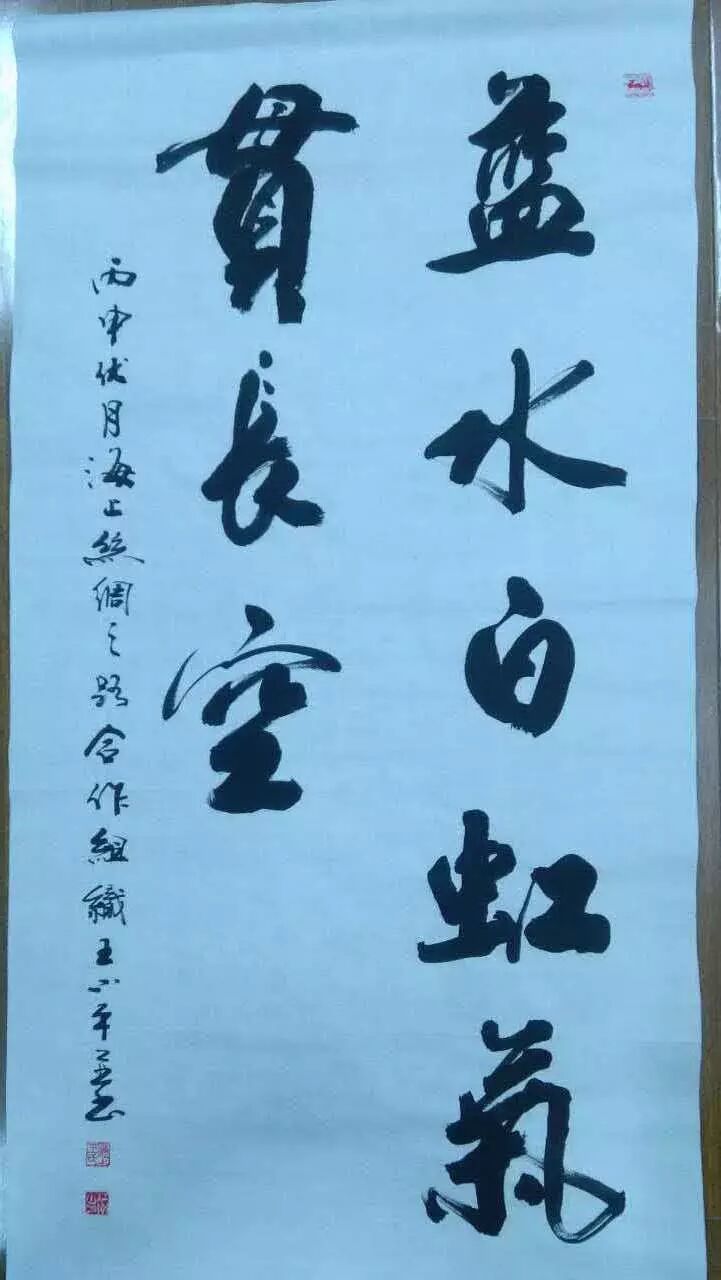 蓝水白虹氣
貫長空
丙申伏月海上絲綢之路合作組織王小平書